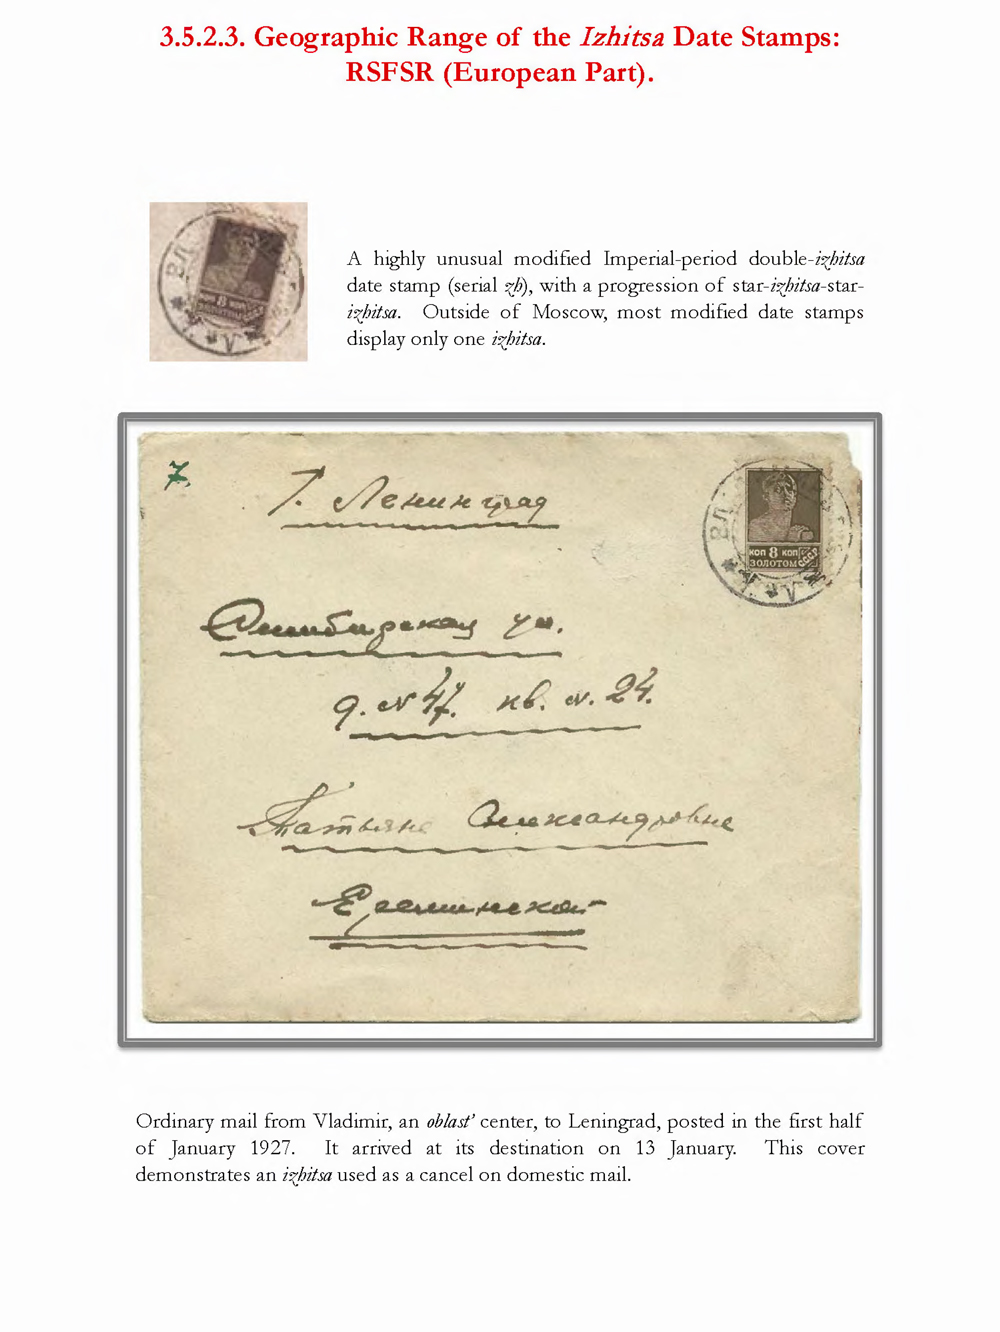 3.5.2.3. Geographic Range of the Izhitsa Date Stamps:
RSFSR (European Part).
ВЛ
КОП 8 КОП
ЗОЛОТОМ СССР
A highly unusual modified Imperial-period double-izhitsa
date stamp (serial zh), with a progression of star-izhitsa-star-
izhitsa. Outside of Moscow, most modified date stamps
display only one izhitsa.
7.
г. Ленинград
ВЛ
КОП 8 КОП
ЗОЛОТОМ СССР
Симбирская ул.
д. № 47. кв. №. 24.
Татьяне Александровне
Ordinary mail from Vladimir, an oblast' center, to Leningrad, posted in the first half
of January 1927. It arrived at its destination on 13 January. This cover
demonstrates an izhitsa used as a cancel on domestic mail.